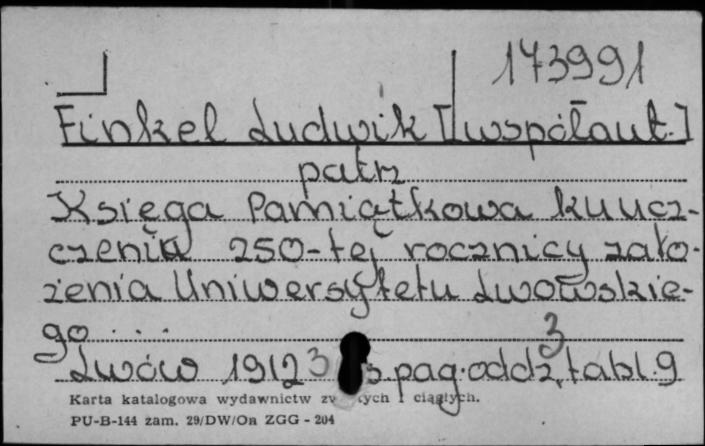 173991
Finkel Ludwik [współaut.]
patrz
Księga Pamiątkowa ku ucz-
czenia 250-tej rocznicy zało-
żenia Uniwersytetu Lwowskie-
go . . . .
Lwów 1912 3 s. pag. oddz. 3, tabl. 9
Karta katalogowa wydawnictw zw tych i ciągłych.
PU-B-144 zam. 29/DW/On ZGG - 204